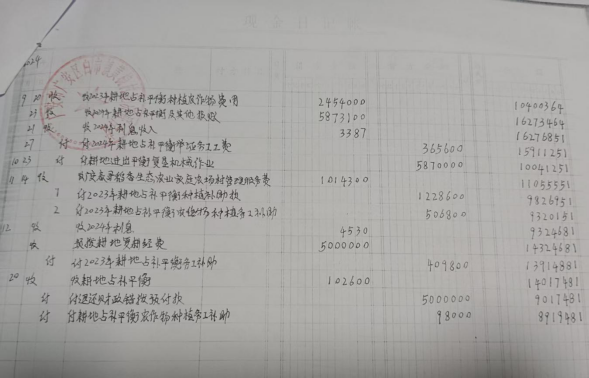 2024
9 20 收 收2023年耕地占补平衡种植农作物费用 2454000 10400364
23 收 收2024年耕地占补平衡及其他拨款 5873100 16273464
21 收 收2024年利息收入 3387 16276851
27 付 付2024年耕地占补平衡 工费 365600 15911251
10 23 付 付耕地进出平衡 机械作业 5870000 10041251
11 14 收 生态农业家庭农场 管理服务费 1014300 11055551
1 付2023年耕地占补平衡种植补助款 1228600 9826951
2 付2023年耕地占补平衡 种植务工补助 506800 9320151
12 收 收2024年利息 4530 9324681
收 预拨耕地 经费 5000000 14324681
付 付2023年耕地占补平衡务工补助 409800 13914881
20 收 收耕地占补平衡 102600 14017481
付 付退还财政 预付款 5000000 9017481
付 付耕地占补平衡农作物种植务工补助 98000 8919481